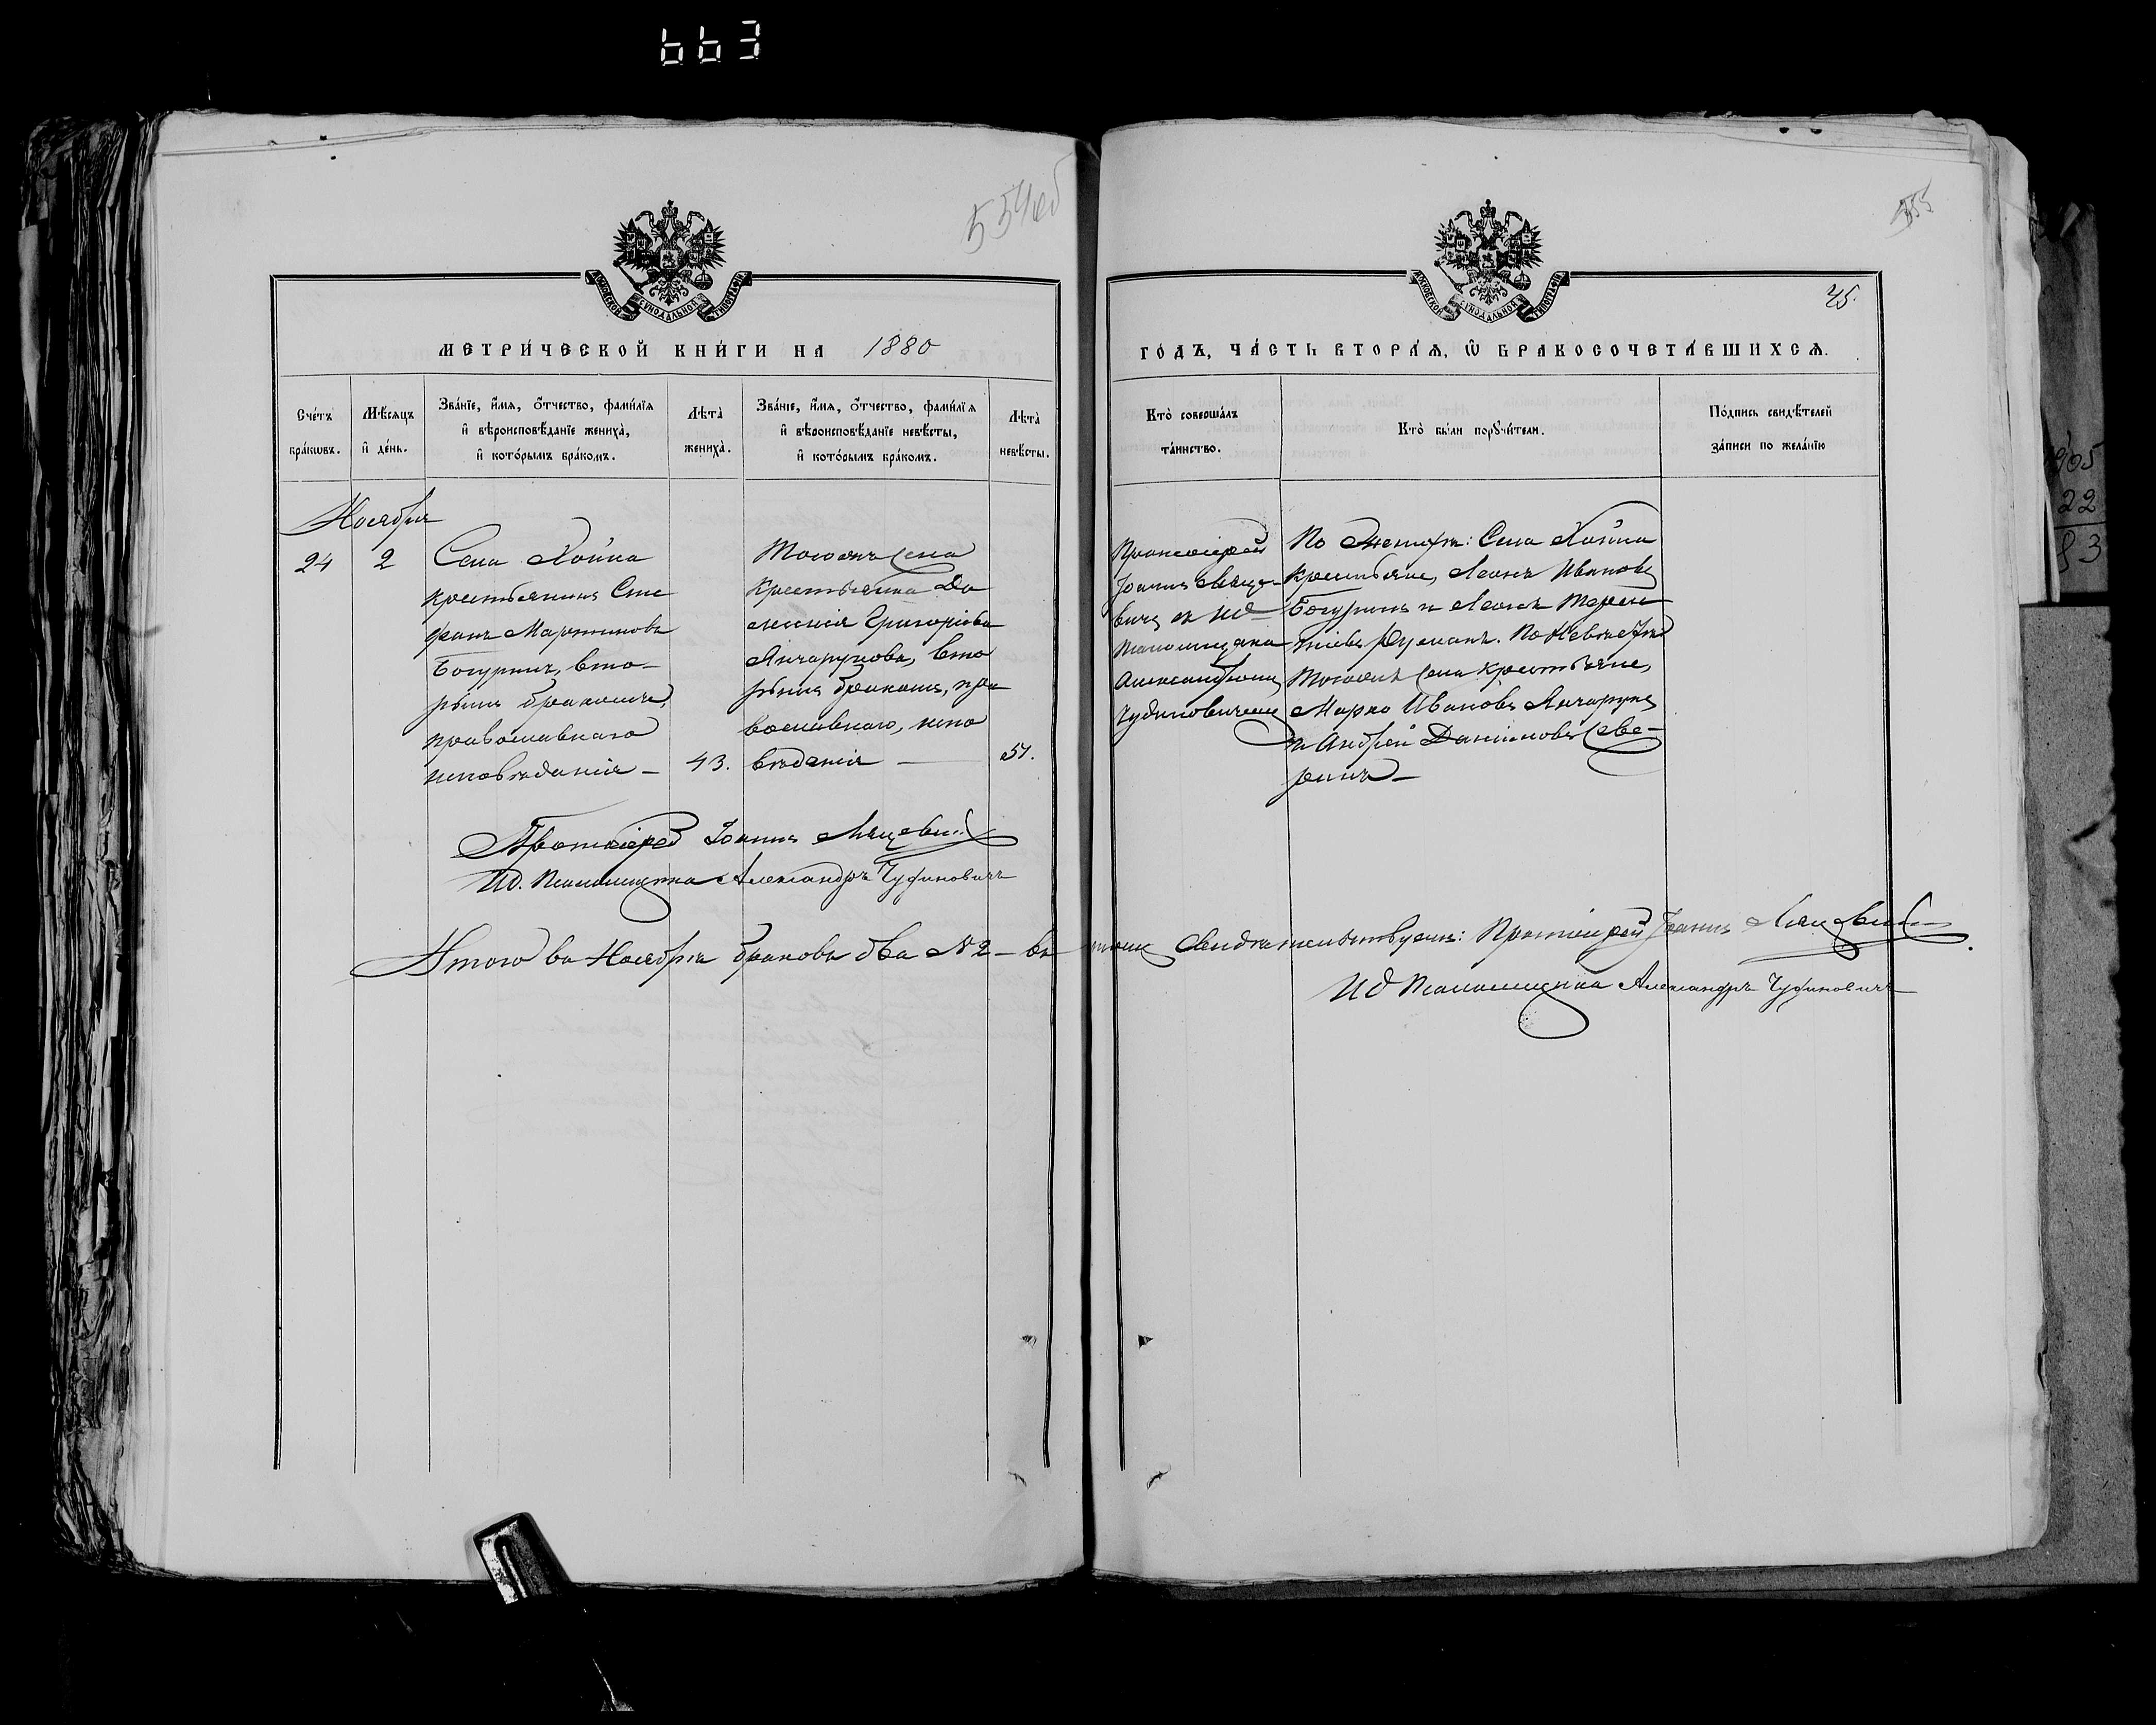 663
554об
555
МОСКОВСКОЙ СѴНОДАЛЬНОЙ ТИПОГРАФІИ
МОСКОВСКОЙ СѴНОДАЛЬНОЙ ТИПОГРАФІИ
45.
МЕТРИ́ЧЕСКОЙ КНИ́ГИ НА 1880
ГО́ДЪ, ЧА́СТЬ ВТОРА́Я, Ѿ БРАКОСОЧЕТА́ВШИХСЯ.
Сче́тъ
бра́кѡвъ.
Мѣ́сяцъ
и҆ де́нь.
Зва́нїе, и҆́мя, ѻ҆́тчество, фами́лїя
и҆ вѣроисповѣ́данїе жениха̀,
и҆ кото́рымъ бра́комъ.
Лѣта̀
жениха̀.
Зва́нїе, и҆́мя, ѻ҆́тчество, фами́лїя
и҆ вѣроисповѣ́данїе невѣ́сты,
и҆ кото́рымъ бра́комъ.
Лѣта̀
невѣ́сты.
Кто̀ соверша́лъ
та́инство.
Кто̀ бы́ли порꙋчи́тели.
По́дпись свидѣ́телей
за́писи по жела́нїю
Ноября
24
2
Села Хойна
крестьянинъ Сте
фанъ Мартиновъ
Богуринъ, вто-
рымъ бракомъ,
православнаго
исповѣданія –
43.
Тогожъ села
крестьянка
Григоріева
Янчарукова, вто
рымъ бракомъ, пра
вославнаго, испо
вѣданія –
51.
Протоіерей
Іоаннъ Ляце-
вичъ съ ИД
псаломщика
Александромъ
Чудиновичемъ
По Женихѣ: Села Хойна
крестьяне, Леонъ Ивановъ
Богуринъ и Леонъ Терен
тіевъ. По Невѣстѣ
Тогожъ села крестьяне,
Марко Ивановъ Янчарукъ
и Андрей Даниловъ Севе-
ринъ –
Протоіерей Іоаннъ Ляцевичъ
ИД. Псаломщика Александръ Чудиновичъ
Итого въ Ноябрѣ браковъ два № 2 – въ чемъ свидѣтельствуемъ: Протоіерей Іоаннъ Ляцевичъ
ИД Псаломщика Александръ Чудиновичъ
22
83